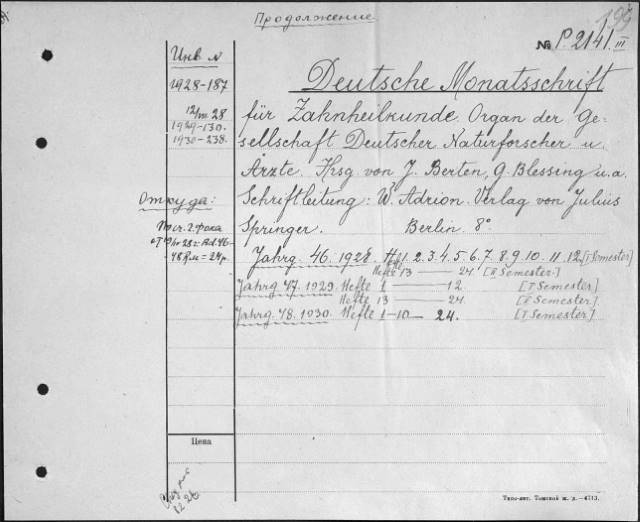 Продолжение
199
№ P. 2141 III
Инв. N
1928-187
12/VII 28
1929-130.
1930-238.
Откуда:
от 19/IV 28 г.
Deutsche Monatsschrift
für Zahnheilkunde. Organ der Ge-
sellschaft Deutscher Naturforscher u.
Ärzte. Hsg. von J. Berten, G. Blessing u. a.
Schriftleitung: W. Adrion. Verlag von Julius
Springer. Berlin. 8°
Jahrg. 46. 1928. Hefte 1. 2. 3. 4. 5. 6. 7. 8. 9. 10. 11. 12. [I Semester]
Hefte 13 — 24 [II Semester.]
Jahrg. 47. 1929. Hefte 1 — 12 [I Semester]
Hefte 13 — 24. [II Semester]
Jahrg. 48. 1930. Hefte 1-10 — 24. [I Semester]
Цена
Типо-лит. Томской ж. д.—4713.